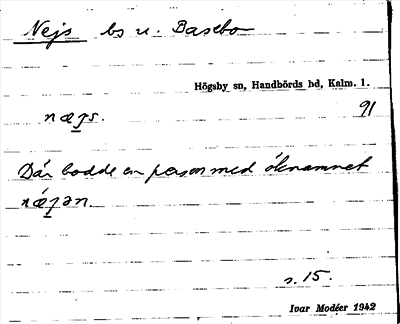 Nejs bs u. Basebo
Högsby sn, Handbörds hd, Kalm. l.
91
næjs.
Där bodde en person med öknamnet
næ̂jən.
s. 15.
Ivar Modéer 1942